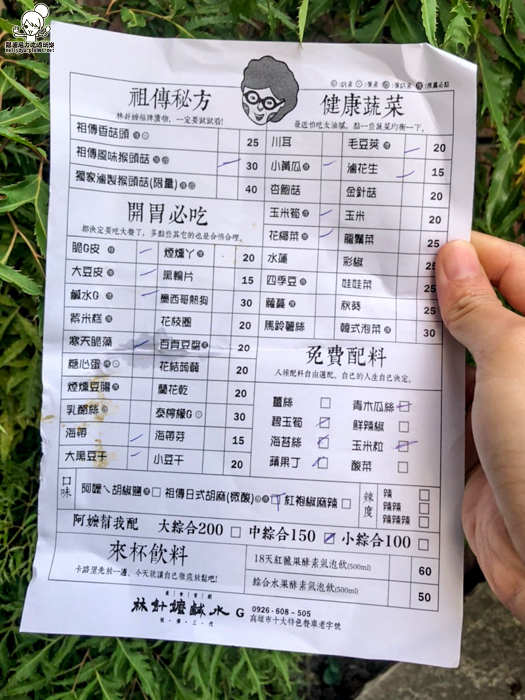 跟著尼力吃喝玩樂
祖傳秘方
林針嬤招牌獨物，一定要試試看!
祖傳香菇頭 25
祖傳風味猴頭菇 30
獨家滷製猴頭菇(限量) 40
開胃必吃
都決定要吃大餐了，多點些其它的也是合情合理。
脆G皮 煙燻丫 20
大豆皮 黑輪片 15
鹹水G 墨西哥熱狗 30
紫米糕 花枝圈 20
寒天脆藻 百頁豆腐 20
糖心蛋 花結蒟蒻 20
煙燻豆腸 蘭花乾 20
乳酪絲 泰檸檬G 30
海帶 海帶芽 15
大黑豆干 小豆干 20
健康蔬菜
最近怕吃太油膩，點一些蔬菜均衡一下。
川耳 毛豆莢 20
小黃瓜 滷花生 15
杏鮑菇 金針菇 20
玉米筍 玉米 20
花椰菜 龍鬚菜 25
水蓮 彩椒 25
四季豆 娃娃菜 25
蘿蔔 秋葵 25
馬鈴薯絲 韓式泡菜 30
免費配料
八種配料自由選配，自己的人生自己決定。
薑絲 青木瓜絲
碧玉筍 鮮辣椒
海苔絲 玉米粒
蘋果丁 酸菜
口味 阿嬤ㄟ胡椒鹽 祖傳日式胡麻(微酸) 紅袍椒麻辣
辣度 辣
辣辣
辣辣辣
阿嬤幫我配 大綜合200 中綜合150 小綜合100
來杯飲料
卡路里先放一邊，今天就讓自己徹底放鬆吧!
18天紅龍果酵素氣泡飲(500ml) 60
綜合水果酵素氣泡飲(500ml) 50
林針嬤鹹水G
祖傳三代
0926-608-505
高雄市十大特色餐車老字號